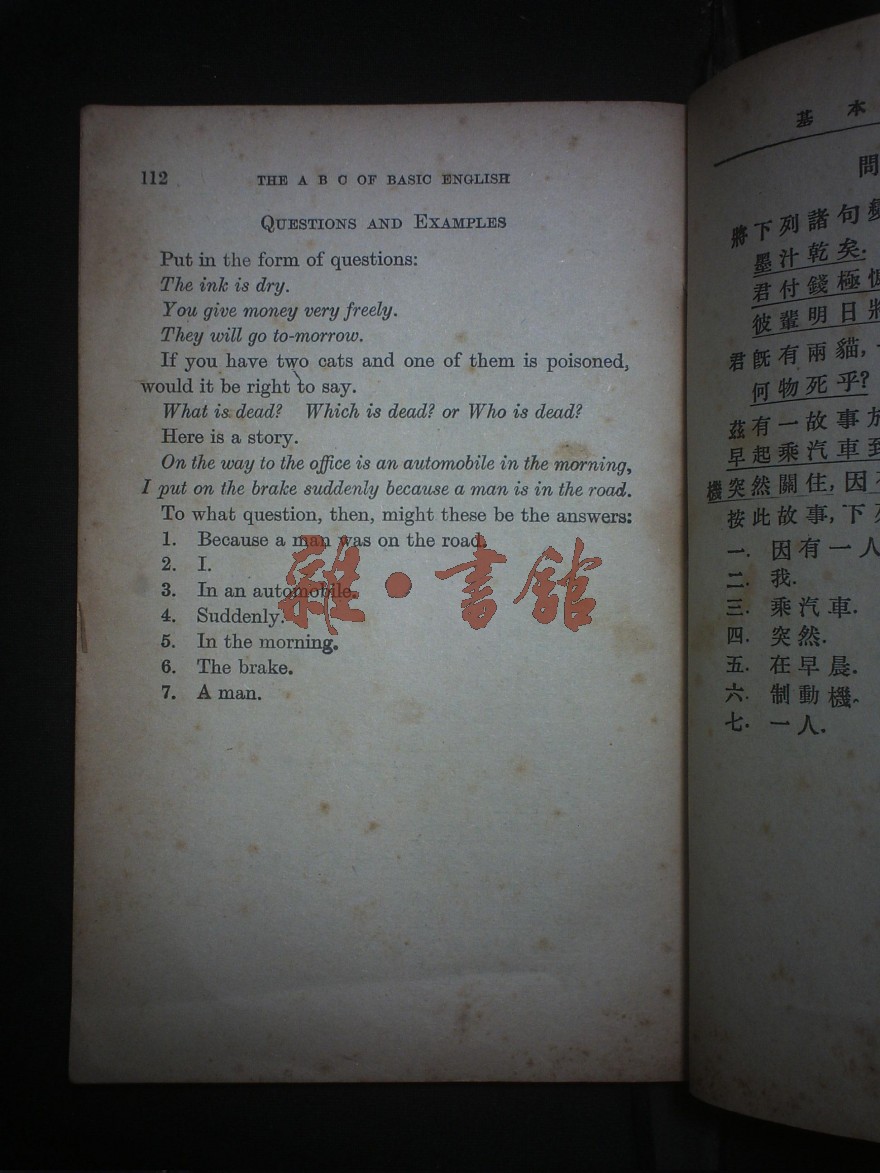 112 THE A B C OF BASIC ENGLISH
QUESTIONS AND EXAMPLES
Put in the form of questions:
The ink is dry.
You give money very freely.
They will go to-morrow.
If you have two cats and one of them is poisoned,
would it be right to say.
What is dead? Which is dead? or Who is dead?
Here is a story.
On the way to the office is an automobile in the morning,
I put on the brake suddenly because a man is in the road.
To what question, then, might these be the answers:
1. Because a man was on the road.
2. I.
3. In an automobile.
4. Suddenly.
5. In the morning.
6. The brake.
7. A man.
雜·書館
基本
問
將下列諸句變
墨汁乾矣.
君付錢極慷
彼輩明日將
君既有兩貓,
何物死乎?
茲有一故事於
早起乘汽車到
機突然關住,因有
按此故事,下列
一. 因有一人
二. 我.
三. 乘汽車.
四. 突然.
五. 在早晨.
六. 制動機.
七. 一人.